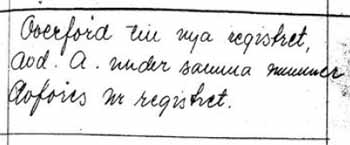 Överförd till nya registret,
avd. A. under samma nummer
Avföres ur registret.